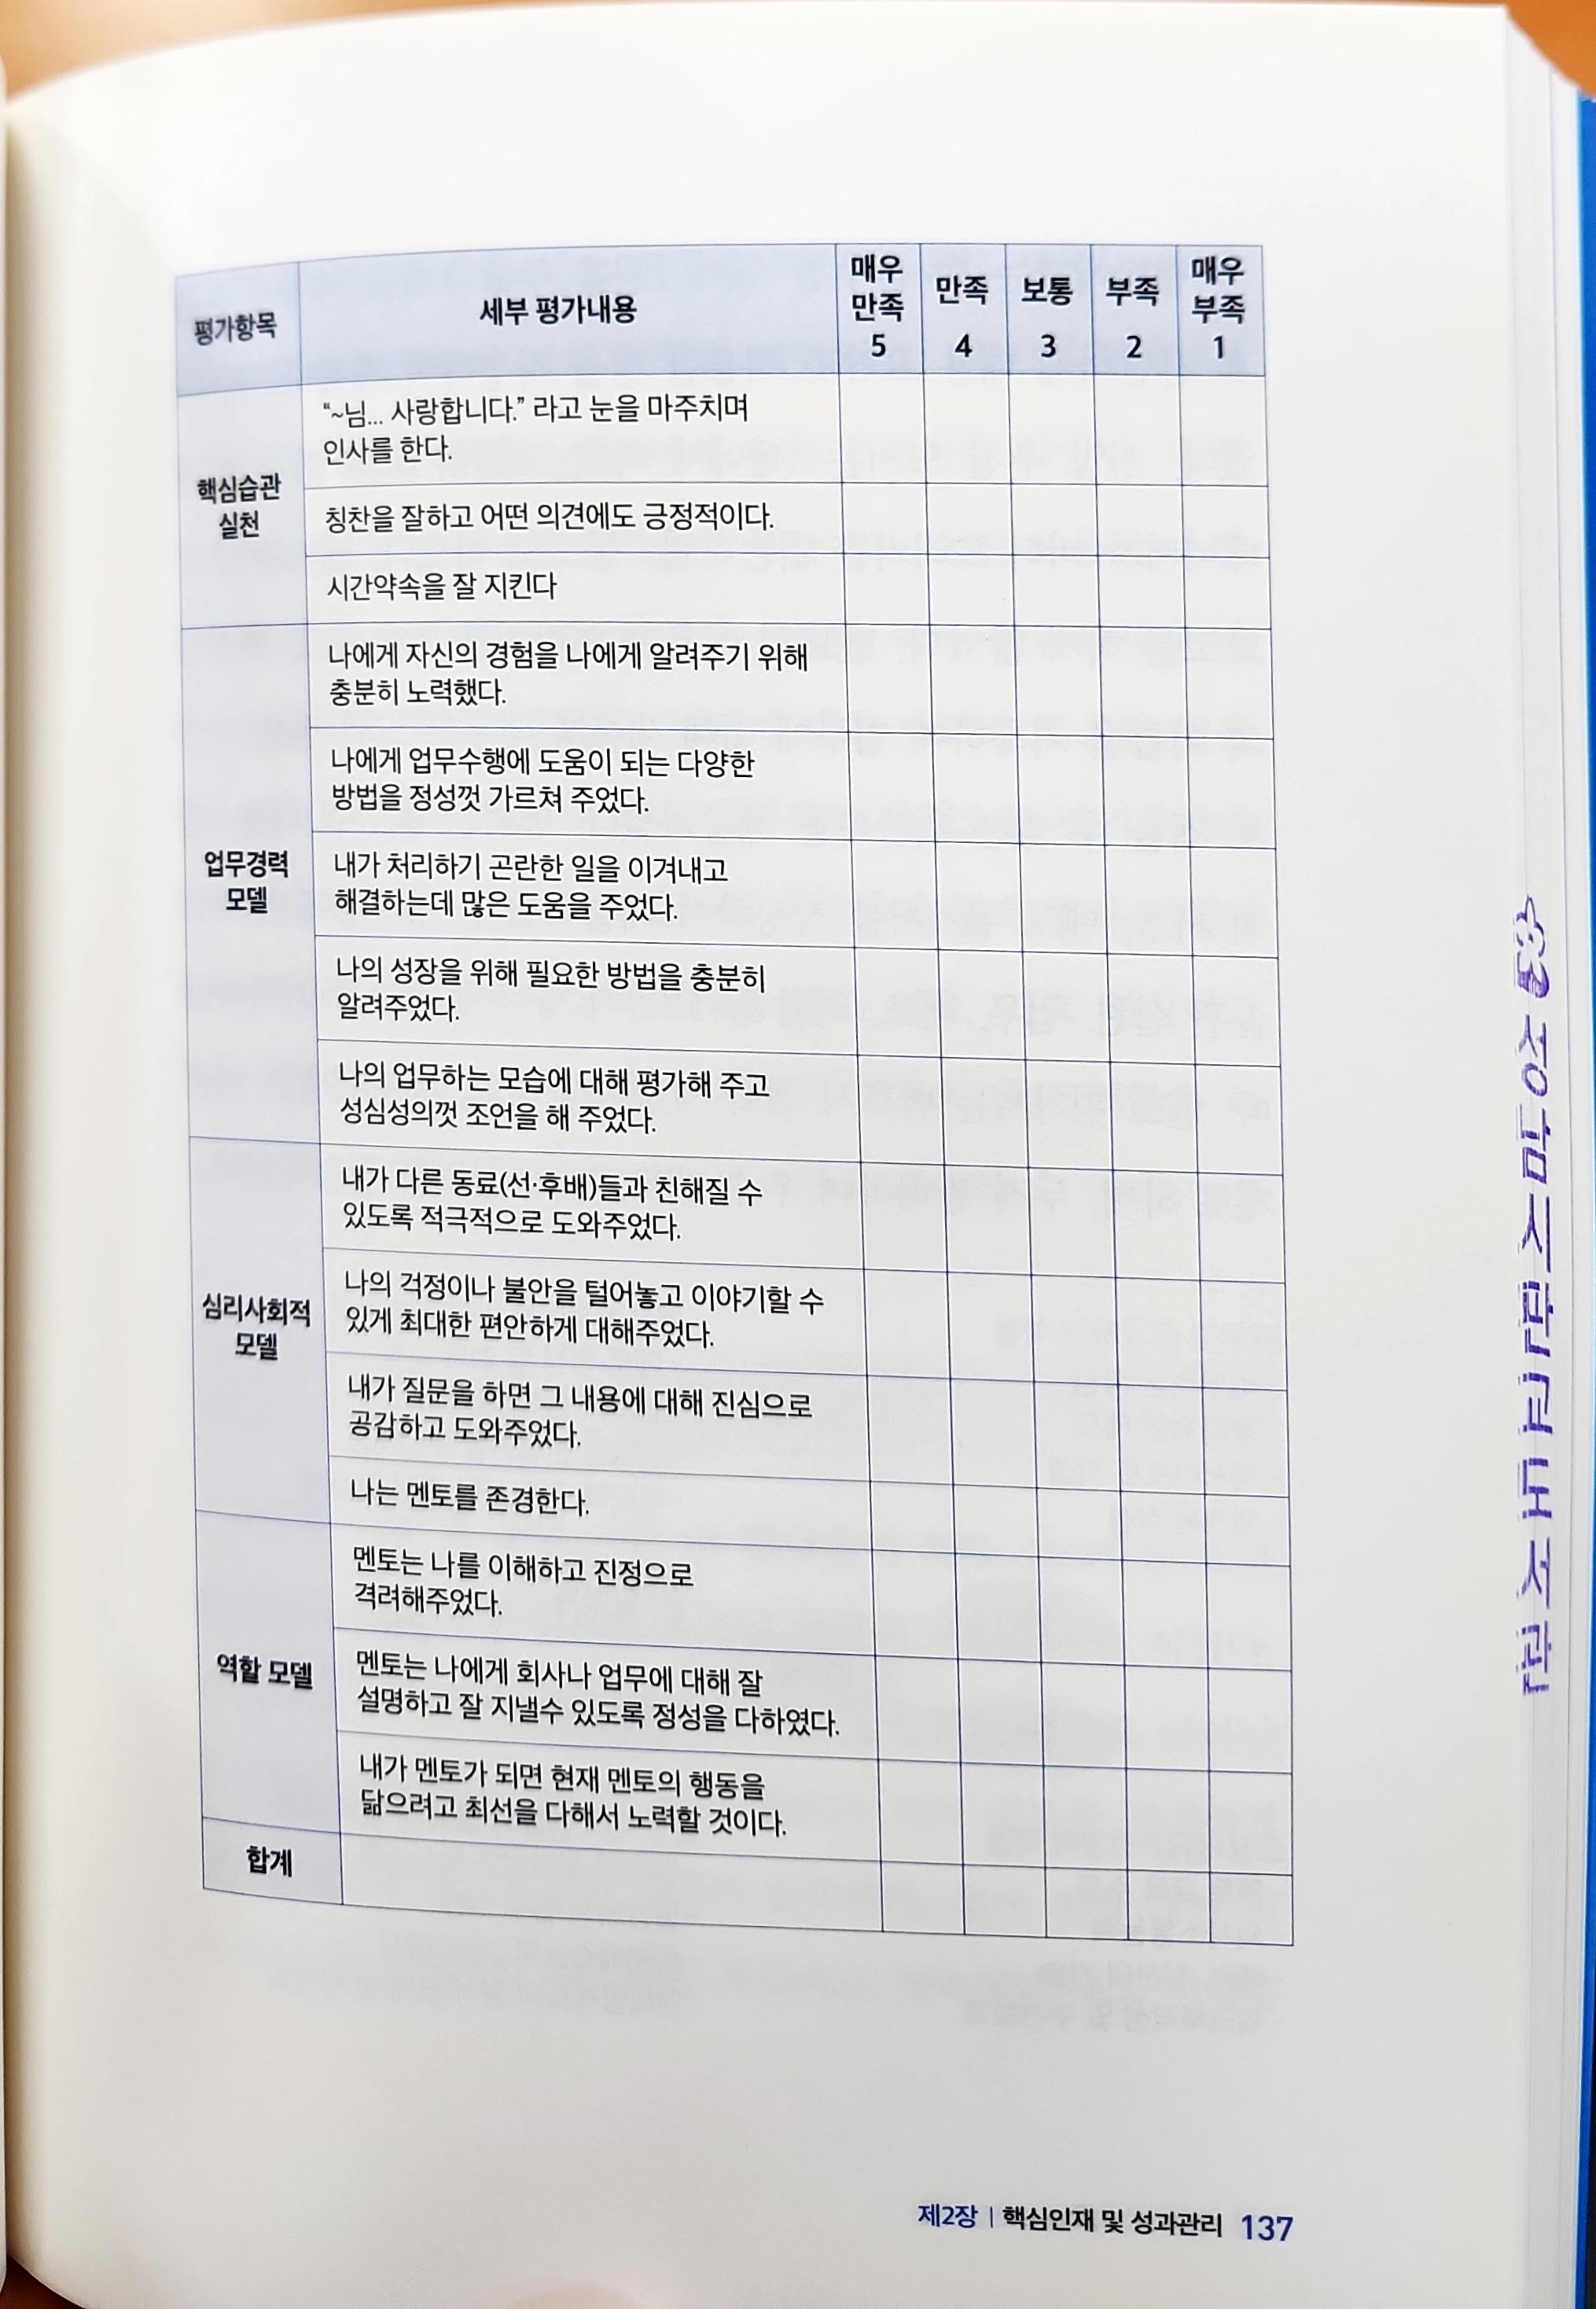 평가항목
세부 평가내용
매우
만족
5
만족
4
보통
3
부족
2
매우
부족
1
핵심습관
실천
“~님... 사랑합니다.” 라고 눈을 마주치며
인사를 한다.
칭찬을 잘하고 어떤 의견에도 긍정적이다.
시간약속을 잘 지킨다
업무경력
모델
나에게 자신의 경험을 나에게 알려주기 위해
충분히 노력했다.
나에게 업무수행에 도움이 되는 다양한
방법을 정성껏 가르쳐 주었다.
내가 처리하기 곤란한 일을 이겨내고
해결하는데 많은 도움을 주었다.
나의 성장을 위해 필요한 방법을 충분히
알려주었다.
나의 업무하는 모습에 대해 평가해 주고
성심성의껏 조언을 해 주었다.
심리사회적
모델
내가 다른 동료(선·후배)들과 친해질 수
있도록 적극적으로 도와주었다.
나의 걱정이나 불안을 털어놓고 이야기할 수
있게 최대한 편안하게 대해주었다.
내가 질문을 하면 그 내용에 대해 진심으로
공감하고 도와주었다.
나는 멘토를 존경한다.
역할 모델
멘토는 나를 이해하고 진정으로
격려해주었다.
멘토는 나에게 회사나 업무에 대해 잘
설명하고 잘 지낼수 있도록 정성을 다하였다.
내가 멘토가 되면 현재 멘토의 행동을
닮으려고 최선을 다해서 노력할 것이다.
합계
제2장 | 핵심인재 및 성과관리 137
성남시판교도서관